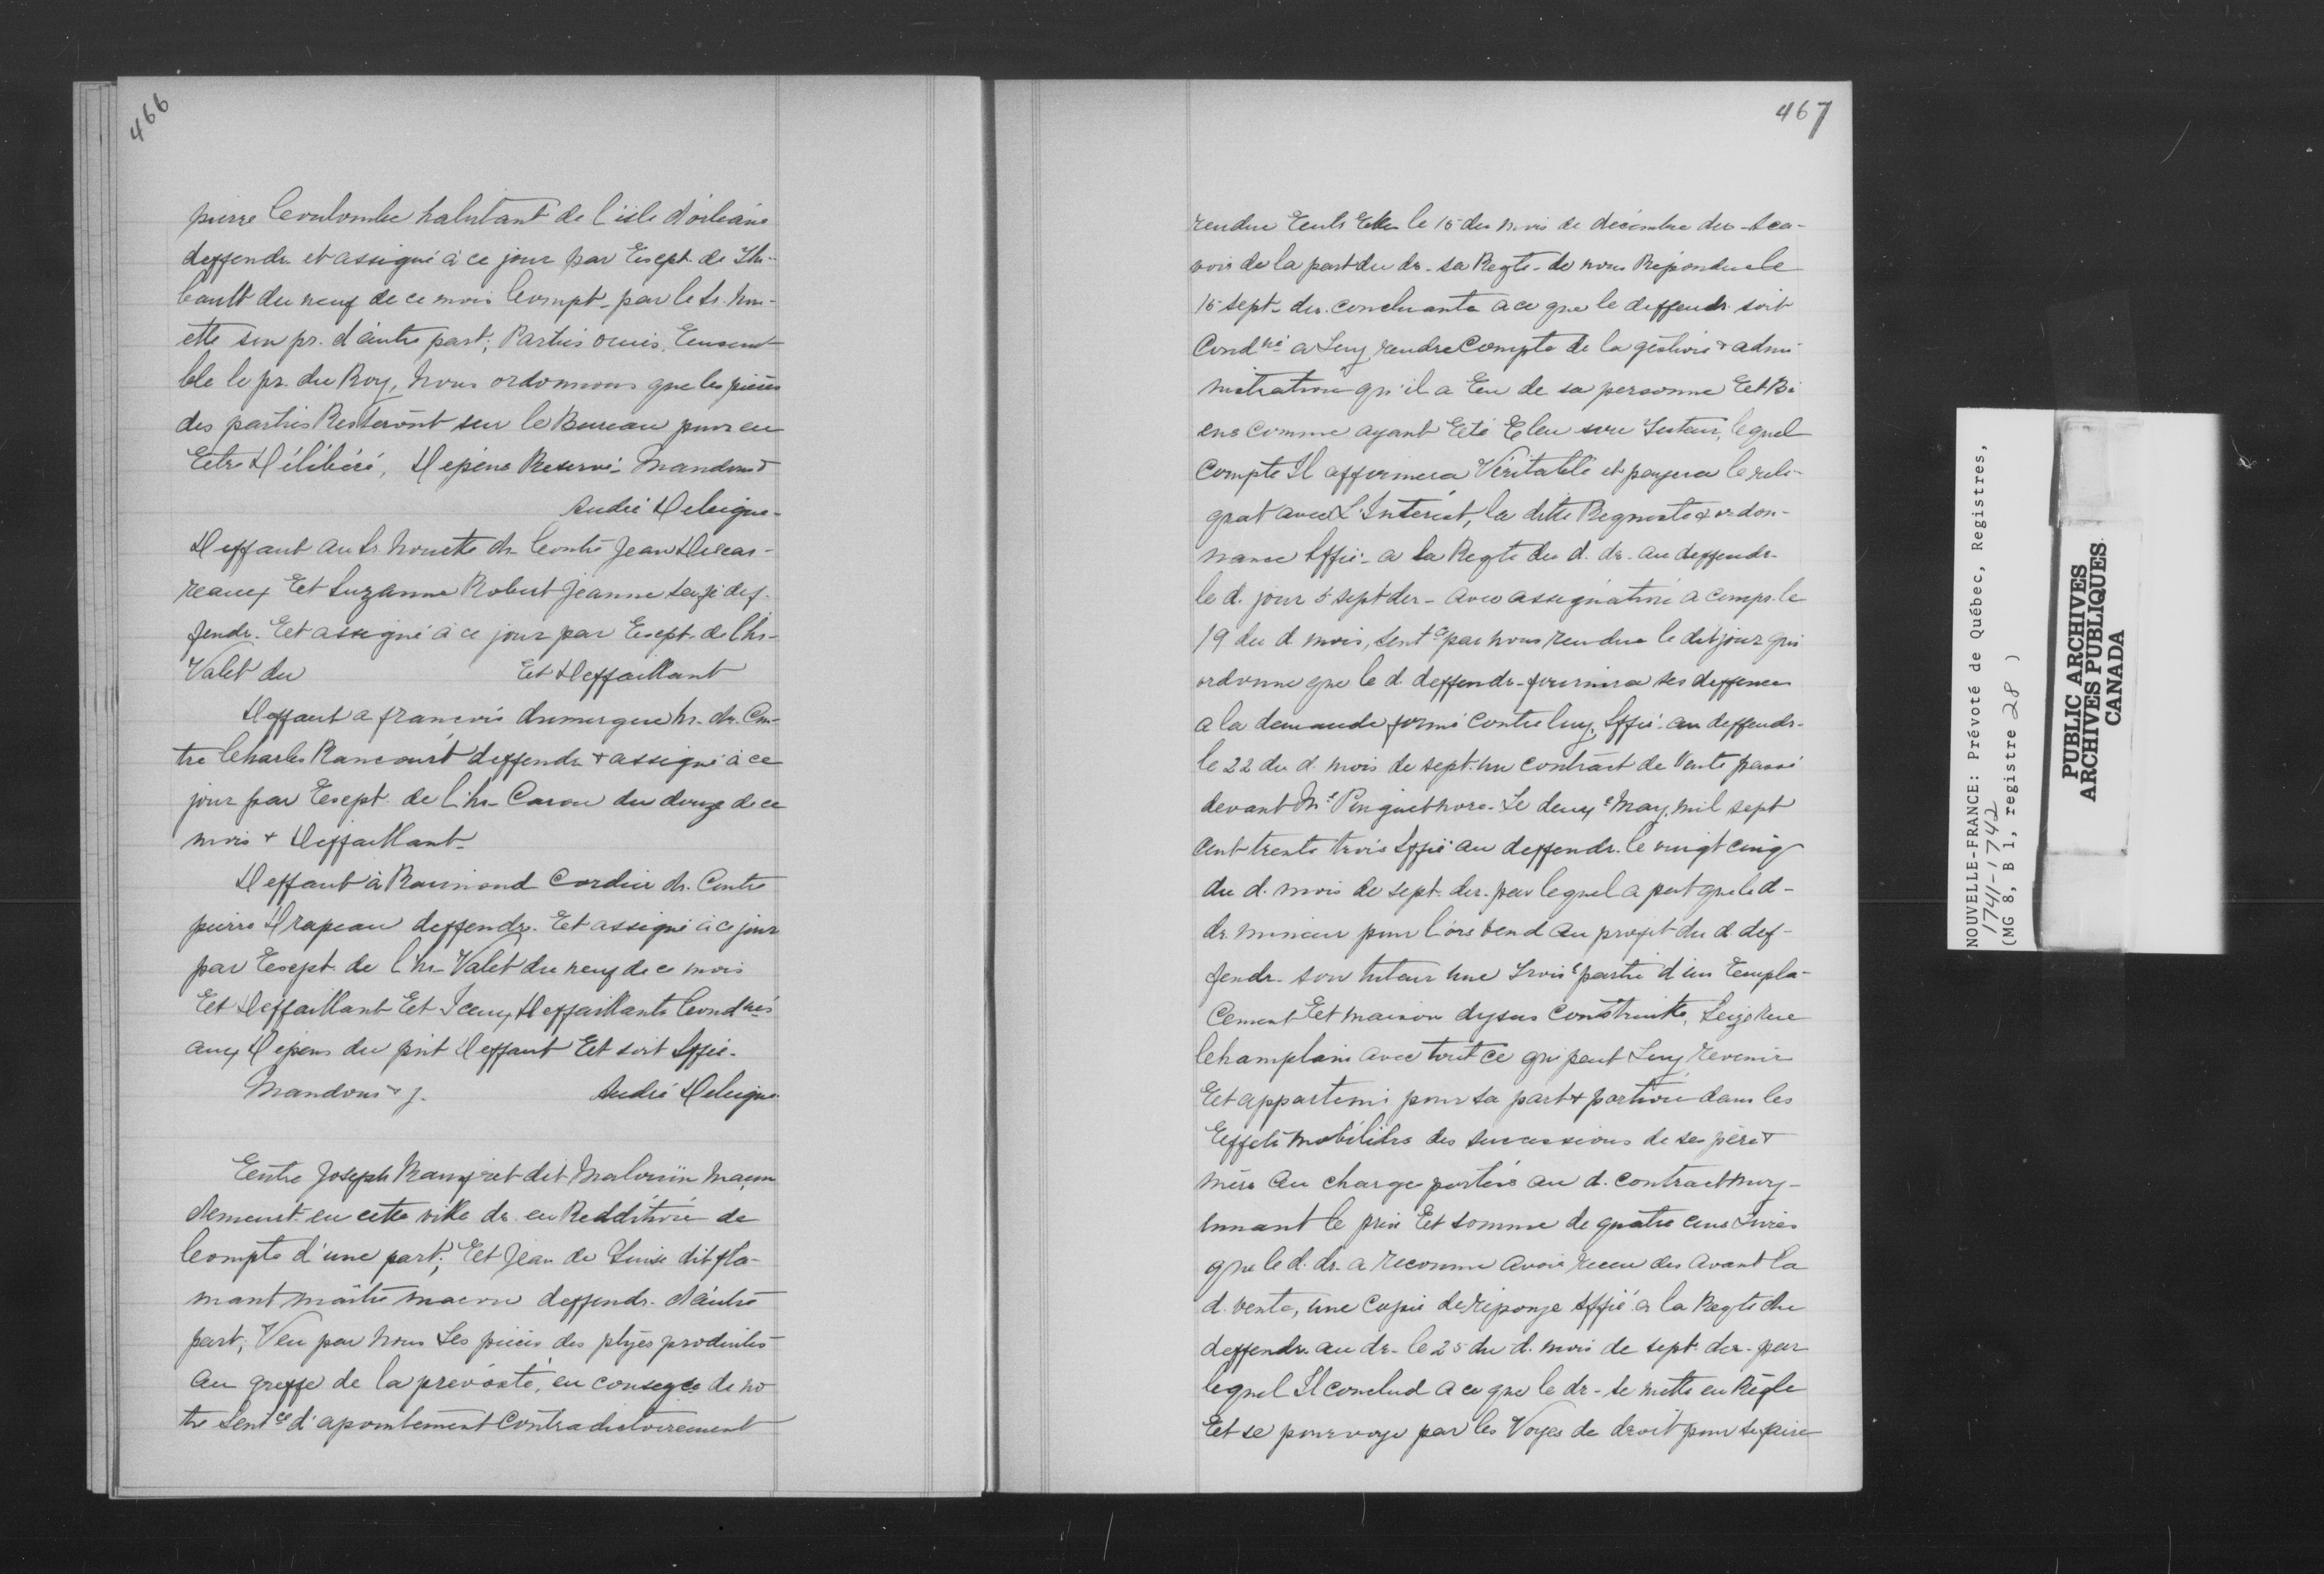 466
pierre Coulombe habitant de l'isle d'orleans
deffendr. et assigné à ce jour par Exept. de Thi-
bault du neuf de ce mois Compt. par le Sr. Nou-
ette son pr. d'autre part; Parties ouies, Eensem
ble le pr. du Roy, Nous ordonnons que les pieces
des parties Resteront sur le Bureau pour en
Eetre Délibéré, Depens Reservé. Mandons &
André Deleigne.
Deffaut au Sr. Nouette dr. Contre Jean Descar-
reaux Eet Suzanne Robert Jeanne sa fe def-
fendr. Eet assigné à ce jour par Eexpt. de l'hr-
Valet du Et Deffaillant
Deffaut a francois dumergue hr. dr. Con-
tre Charles Rancourt deffendr. & assigné à ce
jour par Eexpt. de l'hr. Caron du douze de ce
mois & Deffaillant.
Deffaut à Raimond Cordier dr. Contre
pierre Drapeau deffendr. Eet assigné à ce jour
par Eexpt. de l'hr. Valet du neuf de ce mois
Eet Deffaillant Eet Iceux Deffaillants Cond nés
aux Depens du pnt Deffaut Eet soit Siffié.
Mandons & j. André Deleigne.
Eentre Joseph dit Malouin Maçon
demeurt. en cette ville dr. en Reddition de
Compte d'une part; Eet Jean de Luise dit fla-
mant maître maçon deffendr. d'autre
part; Veu par Nous Les pièces des ptyes produites
au greffe de la prevosté, en conseqce de no
tre Sent ce d'apointement Contradictoirement
467
rendue Eentr Elles le 15 du mois de décembre der. Sca-
voir de la part du dr. sa Reqte. de nous Répondue le
15 sept. der. concluante a ce que le deffendr. soit
Cond né a Luy rendre Compte de la gestion & admi
nistration qu'il a Eeu de sa personne Eet Bi
ens comme ayant Eeté Eleu son Tuteur, lequel
Compte Il affirmera Véritable et payera le reli-
quat avec L'Interest, la ditte Requeste & ordon-
nance Siffié a la Reqte du d. dr. au deffendr.
le d. jour 5 sept der. avec assignation a compr. le
19 du d. mois, Sent ce par nous rendue le dit jour qui
ordonne que le d. deffendr. fournira ses deffences
a la demande formé contre luy, Siffié au deffendr.
le 22 du d. mois de sept. un contract de Vente passé
devant Me Pinguet nore. Le deux e May, mil sept
Cent trente trois Siffié au deffendr. le vingt cinq
du d. mois de sept. der. par lequel a pert que le d.
dr. mineur pour lors vend au proffit du d. def-
fendr. son tuteur une Trois e partie d'un Eempla-
Cement Eet maison dysus construitte, Seize rue
Champlain avec tout ce qui peut Luy revenir
Eet appartenir pour sa part & portion dans les
Eeffets mobiliers des Successions de ses père &
mère au charge portées au d. contract moy-
ennant le prix Eet somme de quatre cens Livres
que le d. dr. a reconnu avoir receu des avant la
d. vente, une copie de reponse Siffié a la Reqte du
deffendr. au dr. le 25 du d. mois de sept. der. par
lequel Il conclud a ce que le dr. se mette en Règle
Eet se pourvoye par les Voyes de droit pour se faire
NOUVELLE-FRANCE: Prévoté de Québec, Registres,
1741-1742
(MG 8, B 1, registre 28 )
PUBLIC ARCHIVES
ARCHIVES PUBLIQUES
CANADA